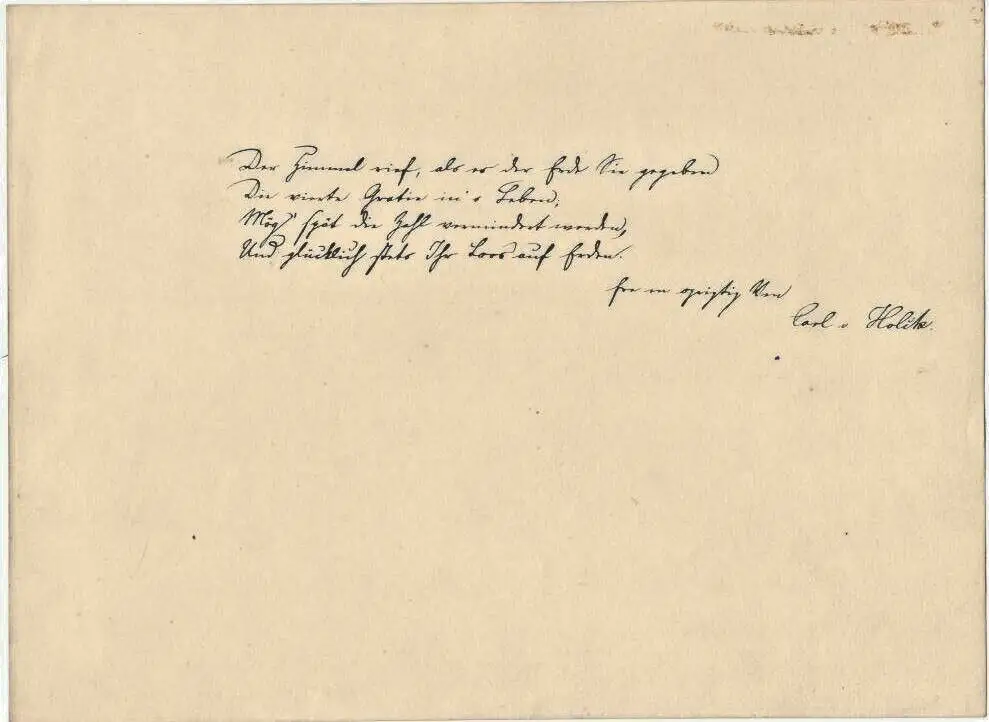 Der Himmel rief, als er der Erde Sie gegeben
Die vierte Gratie in's Leben;
Mög' spät die Zahl vermindert werden,
Und glücklich stets Ihr Loos auf Erden.
Von
Carl v